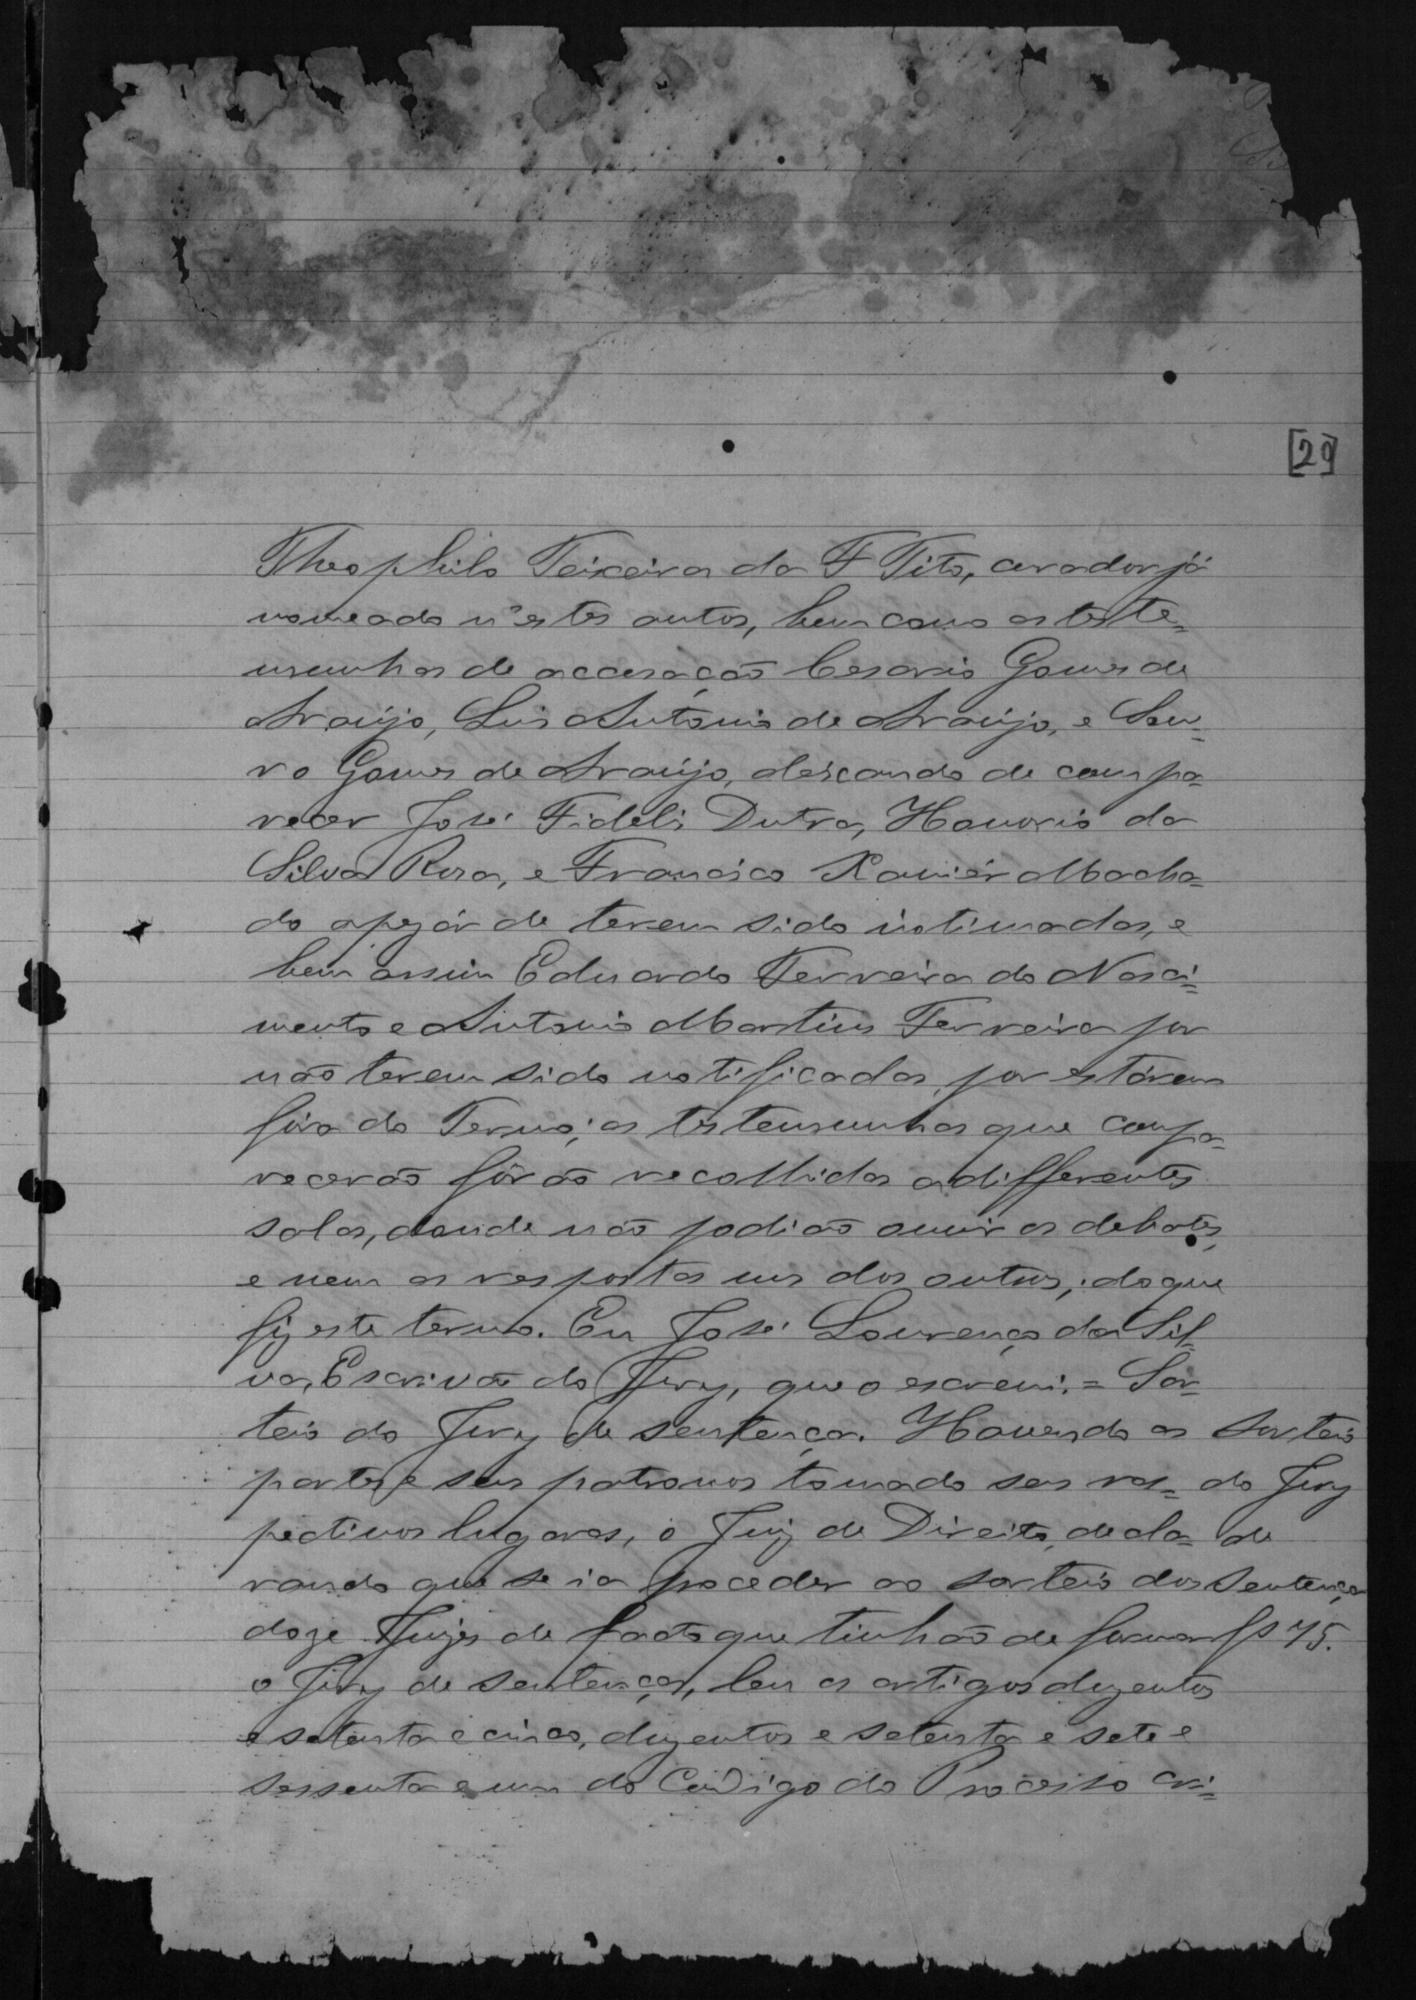 [29]
Theophilo Teixeira da F Tito, curador já
nomeado n'estes autos, bem como as teste=
munhas de accusação Cesario Gomes de
Araújo, Luis Antonio de Araújo, e Lau=
ro Gomes de Araújo, deixando de compa=
recer José Fideli Dutra, Honorio da
Silva Rosa, e Francisco Xaviér Macha=
do apezár de terem sido intimadas, e
bem assim Eduardo Ferreira do Nasci=
mento e Antonio Martins Ferreira por
não terem sido notificadas, por estárem
fóra do Termo; as testemunhas que compa=
recerão fôrão recolhidas a differentes
salas, donde não podião ouvir os debates,
e nem as respostas uns dos outros; do que
fiz este termo. Eu José Lourenço da Sil=
va, Escrivão do Jury, que o escrevi. = Sor=
teio do Jury de sentença. Havendo as
partes e seus patronos tomado seus res=
pectivos lugares, o Juiz de Direito, decla=
rando que se ia proceder ao sorteio dos
doze Juizes de facto que tinhão de formar
o Jury de sentença, leu os artigos duzentos
e setenta e cinco, duzentos e setenta e sete e
sessenta e um do Codigo do Processo cri=
Sorteio
do Jury
de
Sentença
fs 75.